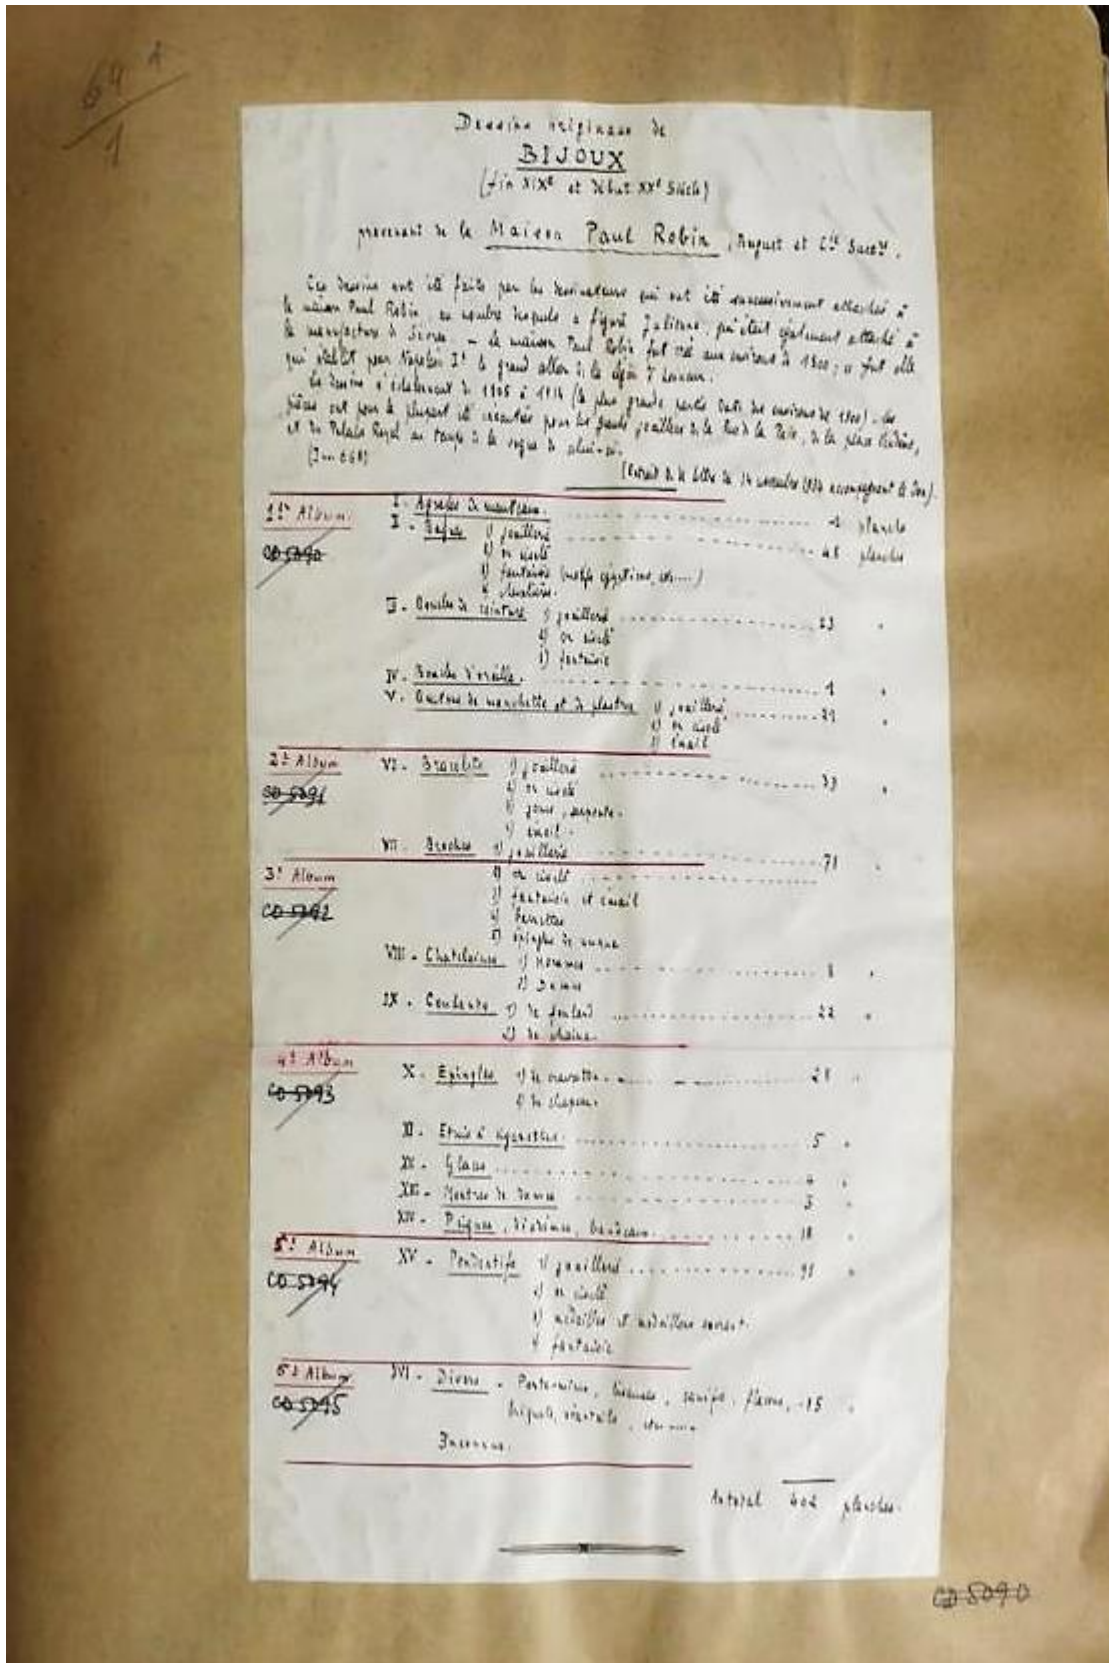 64
1
Dessins originaux de
BIJOUX
(fin XIXe et début XXe Siècle)
provenant de la Maison Paul Robin, August et Cie Succrs.
Ces dessins ont été faits par les dessinateurs qui ont été successivement attachés à
la maison Paul Robin, au nombre desquels a figuré Julienne, qui était également attaché à
la manufacture de Sèvres. - La maison Paul Robin fut créé aux environs de 1800; ce fut elle
qui établit pour Napoléon Ier le grand collier de la légion d'honneur.
Les dessins s'échelonnent de 1905 à 1914 (la plus grande partie date des environs de 1900). Les
pièces ont pour la plupart été exécutées pour les grands joailliers de la Rue de la Paix, de la place Vendôme,
et du Palais Royal au temps de la vogue de celui-ci.
(Inv. 668)
(Extrait de la lettre du 14 novembre accompagnant le don).
1er Album
CD 5090
I - Agrafes de manteaux. 1 planche
II - Bagues 1) joaillerie 48 planches
2) or ciselé
3) fantaisie (motifs égyptiens, etc....)
III - Boucles de ceinture 1) joaillerie 23 "
2) or ciselé
3) fantaisie
IV - Boucles d'oreille. 1 "
V - Boutons de manchette et de plastron 1) joaillerie 21 "
2) or ciselé
3) émail
2e Album
CD 5091
VI - Bracelets 1) joaillerie 33 "
2) or ciselé
3) joncs, serpents.
4) émail.
VII - Broches 1) joaillerie 71 "
3e Album
CD 5092
2) or ciselé
3) fantaisie et émail
4) barrettes
5) épingles de nurse
VIII - Chatelaines 1) Hommes 8 "
2) Dames
IX - Coulants 1) de foulard 22 "
2) de chaîne.
4e Album
CD 5093
X - Epingles 1) de cravatte 28 "
2) de chapeau.
XI - Etuis à cigarettes. 5 "
XII - Glaces 4 "
XIII - Montres de dames 3 "
XIV - Peignes, diadèmes, bandeaux 18 "
5e Album
CD 5094
XV - Pendentifs 1) joaillerie 91 "
2) or ciselé
3) médailles et médaillons ouvrant.
4) fantaisie
6e Album
CD 5095
XVI - Divers - Porte-mine, canifs, flacons, 15 "
briquets, éventails, etc.....
Inconnus.
Au total 402 planches.
CD 5090